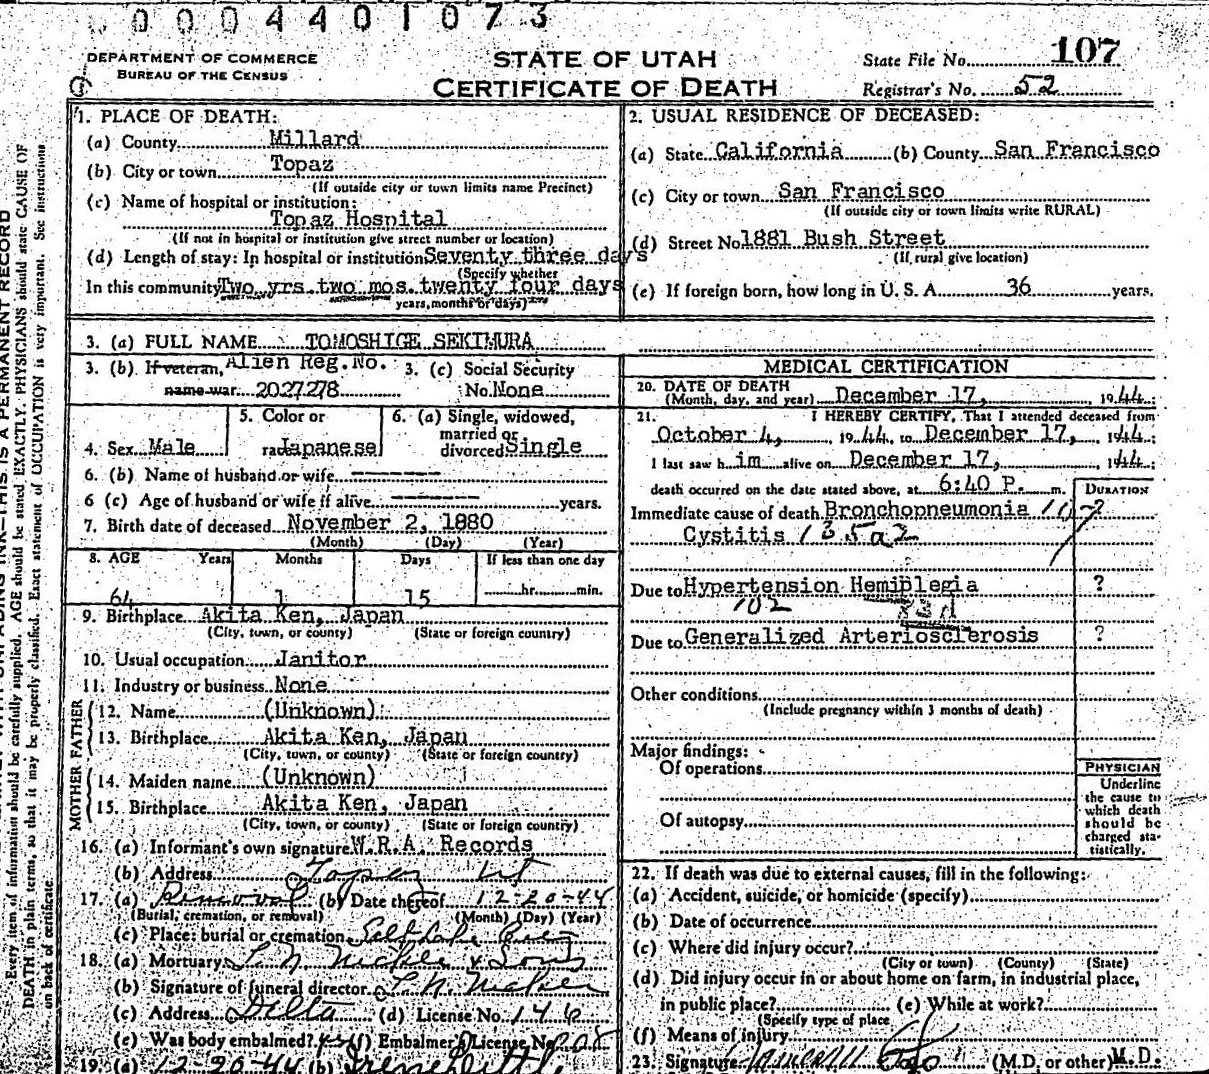 0004401073
DEPARTMENT OF COMMERCE
BUREAU OF THE CENSUS
STATE OF UTAH
CERTIFICATE OF DEATH
State File No. 107
Registrar's No. 52
1. PLACE OF DEATH:
(a) County Millard
(b) City or town Topaz
(If outside city or town limits name Precinct)
(c) Name of hospital or institution:
Topaz Hospital
(If not in hospital or institution give street number or location)
(d) Length of stay: In hospital or institution Seventy three days
(Specify whether
In this community Two yrs. two mos. twenty four days
years, months or days)
2. USUAL RESIDENCE OF DECEASED:
(a) State California (b) County San Francisco
(c) City or town San Francisco
(If outside city or town limits write RURAL)
(d) Street No 1881 Bush Street
(If rural give location)
(e) If foreign born, how long in U. S. A. 36 years.
3. (a) FULL NAME TOMOSHIGE SEKIMURA
3. (b) If veteran, Alien Reg. No. 3. (c) Social Security
name war 2027278 No. None
4. Sex Male 5. Color or race Japanese 6. (a) Single, widowed, married or divorced Single
6. (b) Name of husband or wife --------
6 (c) Age of husband or wife if alive -------- years.
7. Birth date of deceased November 2, 1880
(Month) (Day) (Year)
8. AGE Years Months Days If less than one day
64 1 15 hr. min.
9. Birthplace Akita Ken, Japan
(City, town, or county) (State or foreign country)
10. Usual occupation Janitor
11. Industry or business None
FATHER
12. Name (Unknown)
13. Birthplace Akita Ken, Japan
(City, town, or county) (State or foreign country)
MOTHER
14. Maiden name (Unknown)
15. Birthplace Akita Ken, Japan
(City, town, or county) (State or foreign country)
16. (a) Informant's own signature W.R.A. Records
(b) Address Topaz Ut
17. (a) Removal (b) Date thereof 12-20-44
(Burial, cremation, or removal) (Month) (Day) (Year)
(c) Place: burial or cremation Salt Lake City
18. (a) Mortuary & Sons
(b) Signature of funeral director
(c) Address Delta (d) License No. 146
(e) Was body embalmed? yes (f) Embalmer's License No.
19. (a) 12-20-44 (b)
MEDICAL CERTIFICATION
20. DATE OF DEATH
(Month, day, and year) December 17, 1944
21. I HEREBY CERTIFY, That I attended deceased from
October 4, 1944, to December 17, 1944;
I last saw him alive on December 17, 1944;
death occurred on the date stated above, at 6:40 P. m.
DURATION
Immediate cause of death Bronchopneumonia 107 ?
Cystitis 135a2
Due to Hypertension Hemiplegia ?
102 83A
Due to Generalized Arteriosclerosis ?
Other conditions
(Include pregnancy within 3 months of death)
Major findings:
Of operations
Of autopsy
PHYSICIAN
Underline
the cause to
which death
should be
charged sta-
tistically.
22. If death was due to external causes, fill in the following:
(a) Accident, suicide, or homicide (specify)
(b) Date of occurrence
(c) Where did injury occur?
(City or town) (County) (State)
(d) Did injury occur in or about home on farm, in industrial place,
in public place? (e) While at work?
(Specify type of place
(f) Means of injury
23. Signature (M.D. or other) M.D.
THIS IS A PERMANENT RECORD
Every item of information should be carefully supplied. AGE should be stated EXACTLY. PHYSICIANS should state CAUSE OF
DEATH in plain terms, so that it may be properly classified. Exact statement of OCCUPATION is very important. See instructions
on back of certificate.